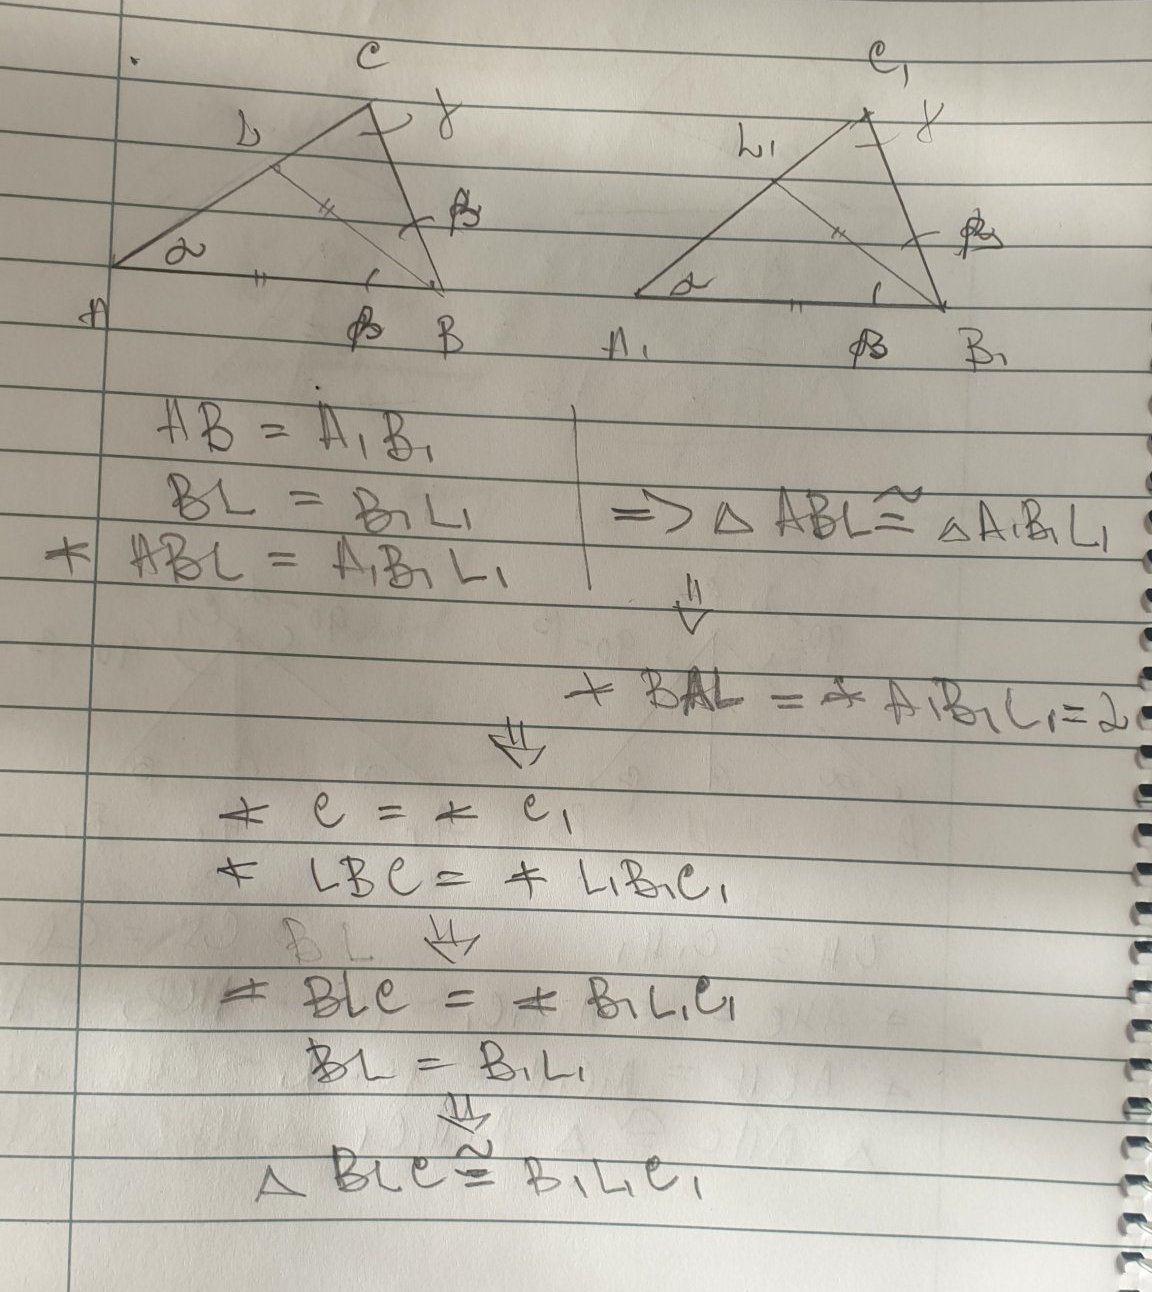 C C₁
L γ L₁ γ
β β
α α
A β B A₁ β B₁
AB = A₁B₁
BL = B₁L₁ => △ ABL ≅ △ A₁B₁L₁
∢ ABL = A₁B₁L₁
⇓
∢ BAL = ∢ A₁B₁L₁ = α
⇓
∢ C = ∢ C₁
∢ LBC = ∢ L₁B₁C₁
BL ⇓
∢ BLC = ∢ B₁L₁C₁
BL = B₁L₁
⇓
△ BLC ≅ B₁L₁C₁